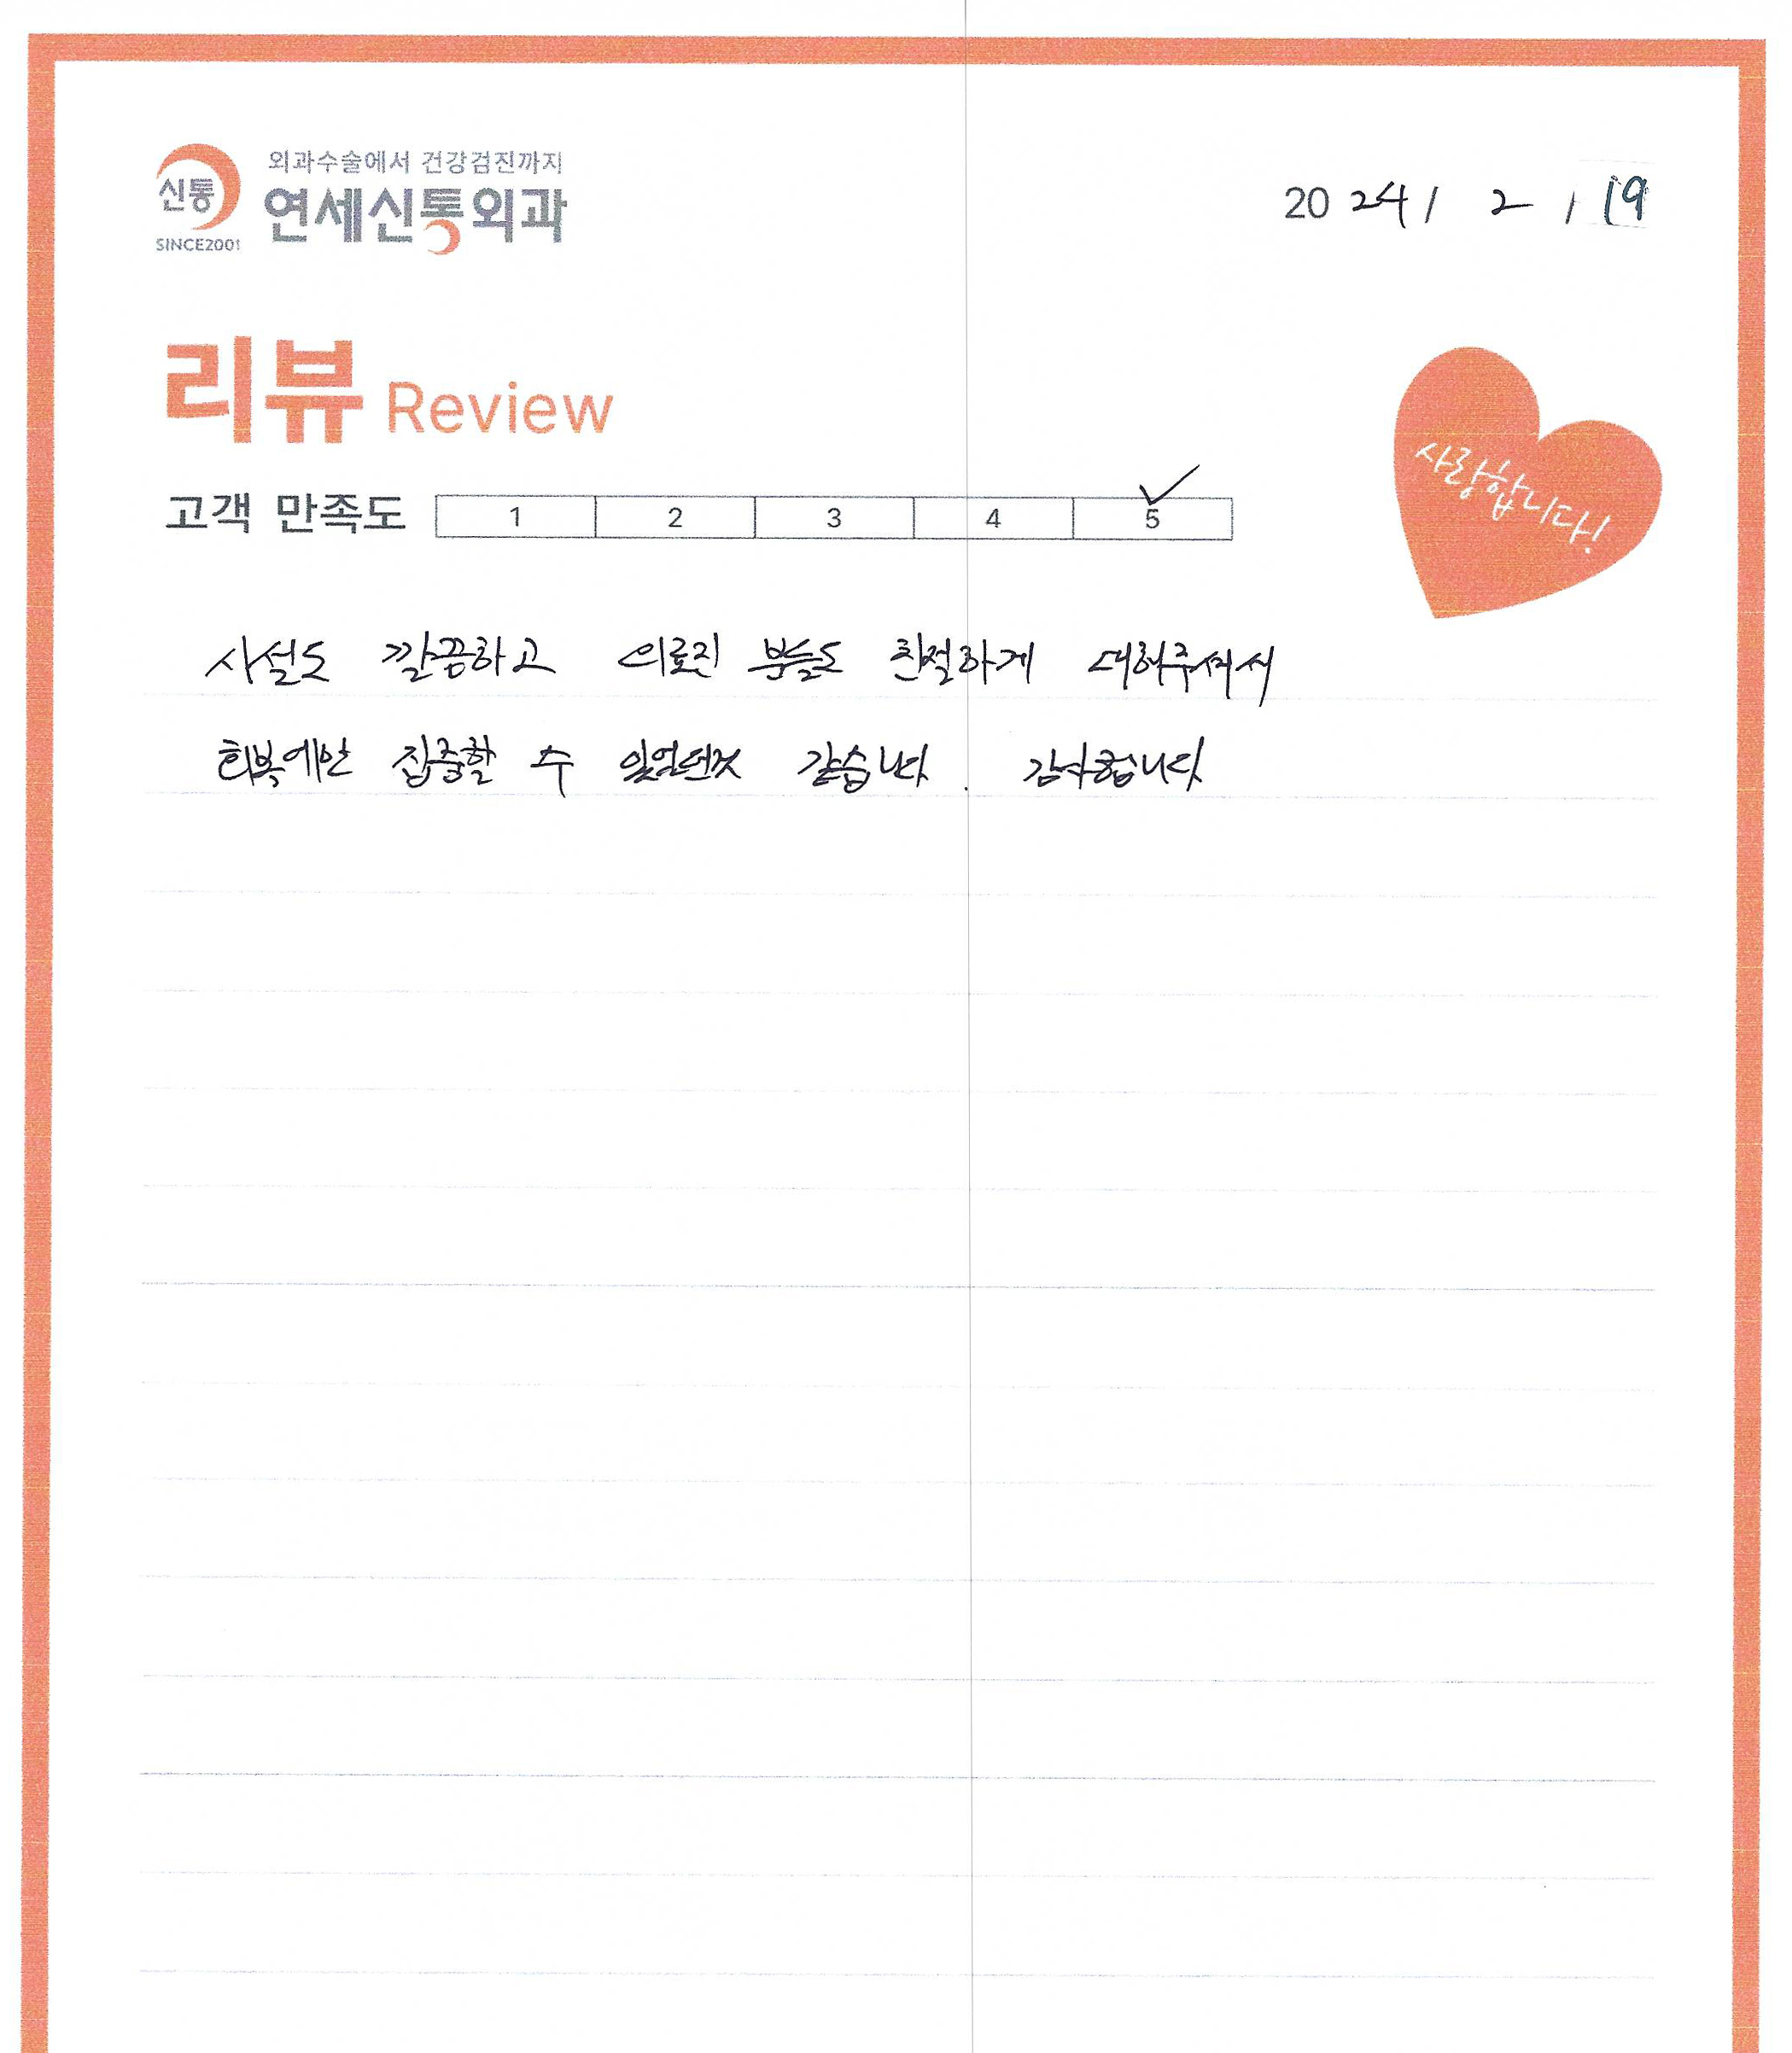 외과수술에서 건강검진까지
신통
연세신통외과
SINCE2001
2024 / 2 / 19
리뷰 Review
사랑합니다!
고객 만족도 1 2 3 4 5
시설도 깔끔하고 의료진 분들도 친절하게 대해주셔서
회복에만 집중할 수 있었던것 같습니다. 감사합니다